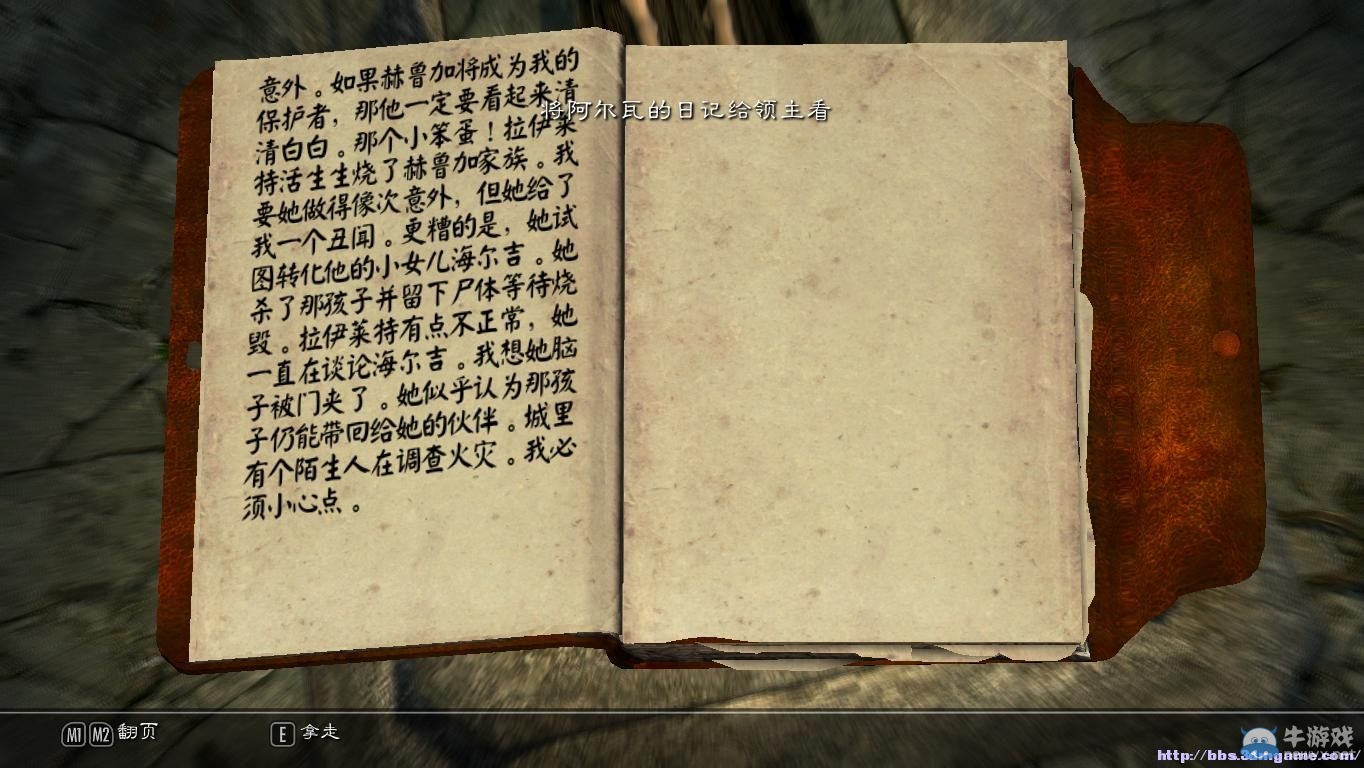 意外。如果赫鲁加将成为我的
保护者，那他一定要看起来清
清白白。那个小笨蛋！拉伊莱
特活生生烧了赫鲁加家族。我
要她做得像次意外，但她给了
我一个丑闻。更糟的是，她试
图转化他的小女儿海尔吉。她
杀了那孩子并留下尸体等待烧
毁。拉伊莱特有点不正常，她
一直在谈论海尔吉。我想她脑
子被门夹了。她似乎认为那孩
子仍能带回给她的伙伴。城里
有个陌生人在调查火灾。我必
须小心点。
将阿尔瓦的日记给领主看
M1 M2 翻页
E 拿走
牛游戏
http://bbs.3dmgame.com/